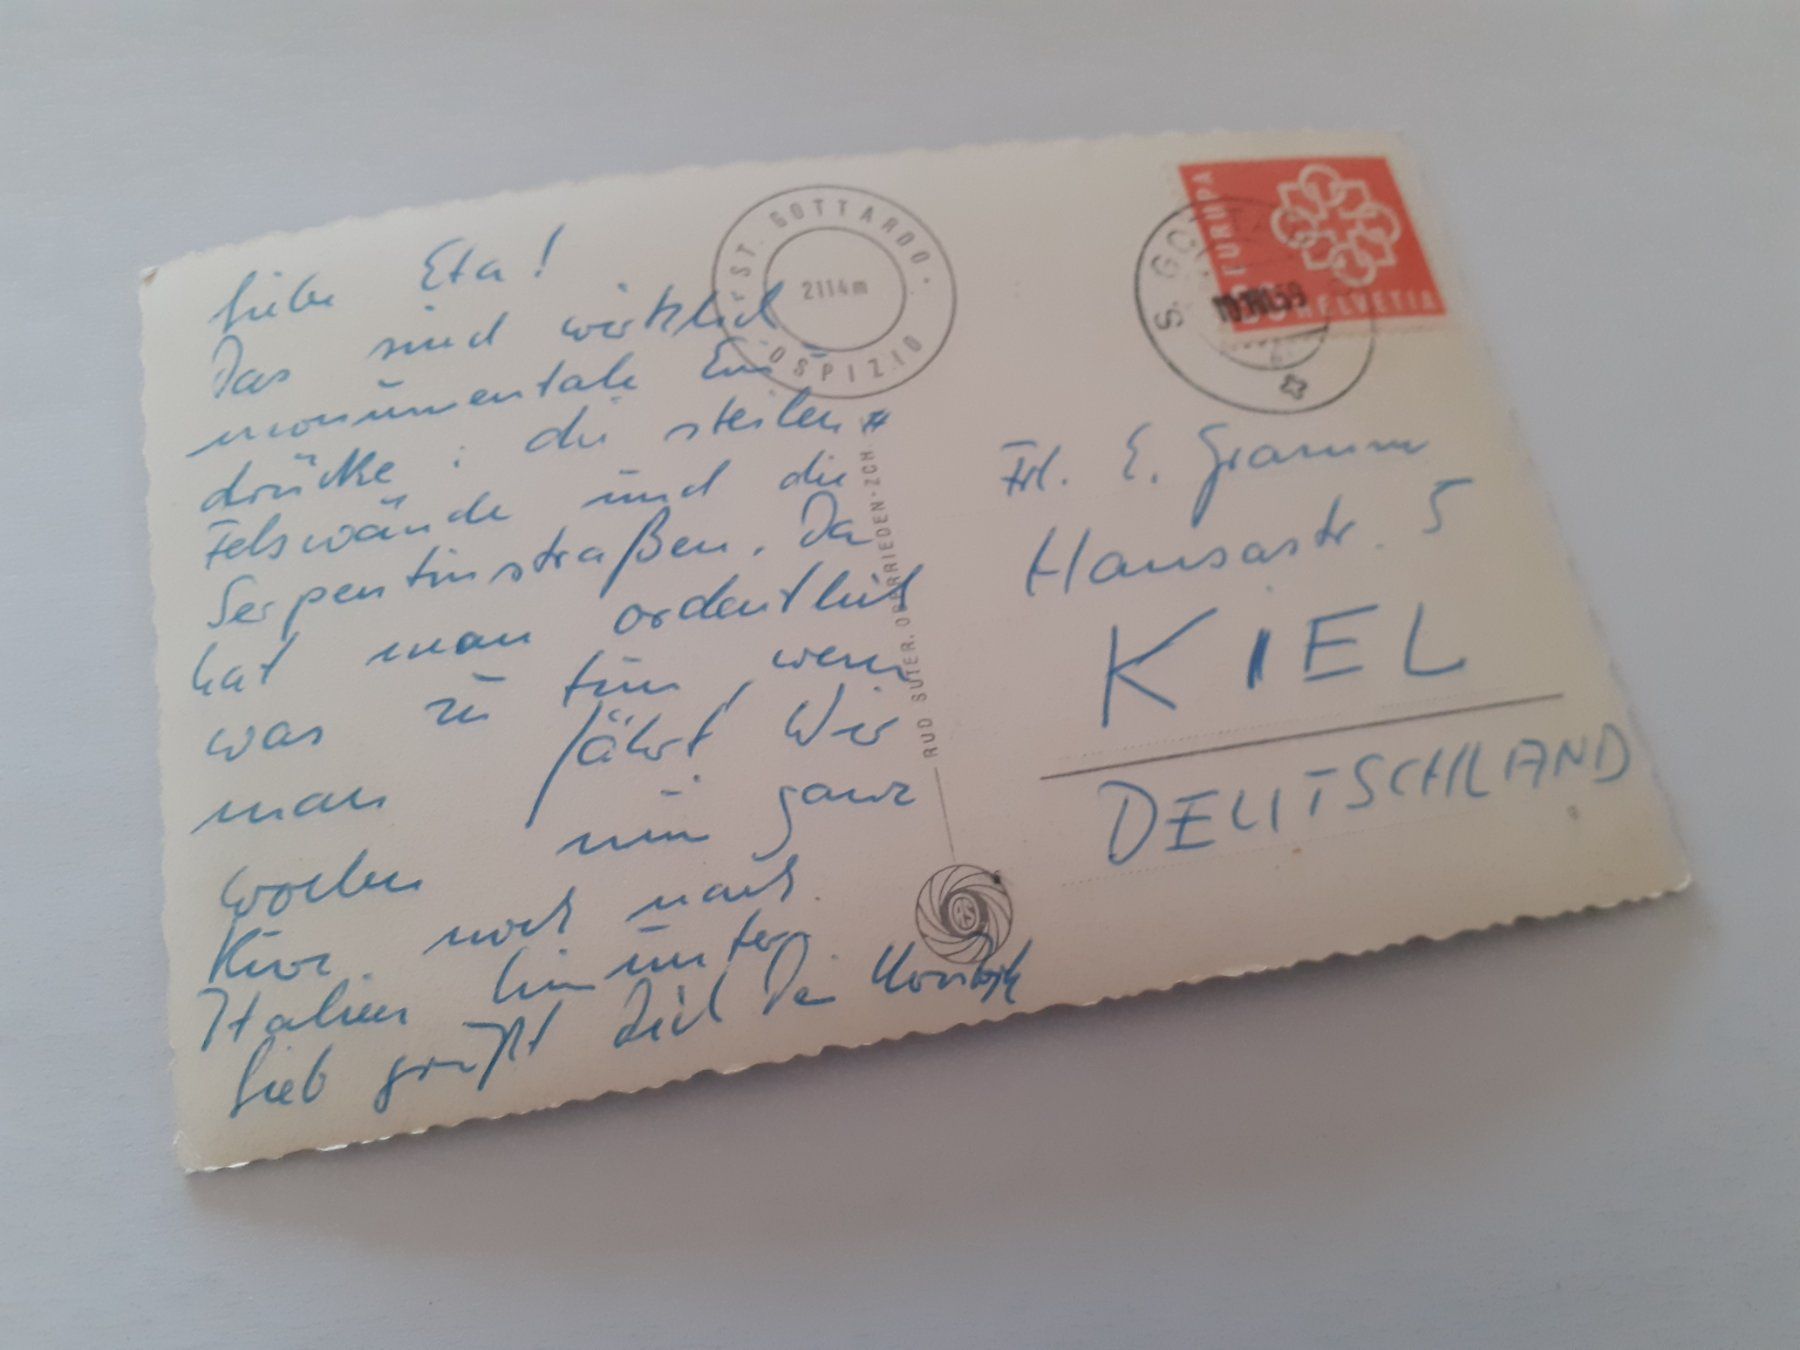 Liebe Eta!
Das sind wirklich
monumentale Ein
drücke: die steilen
Felswände und die
Serpentinstraßen. Da
hat man ordentlich
was zu tun, wenn
man fährt. Wir
wollen nun ganz
kurz noch nach
Italien hinunter.
Lieb grüßt Dich Dein
ST. GOTTARDO
2114m
OSPIZIO
RUD SUTER, OBERRIEDEN-ZCH.
RS
S. GO
10.VIII.59
EUROPA
HELVETIA
Frl. E. Gramm
Hansastr. 5
KIEL
DEUTSCHLAND